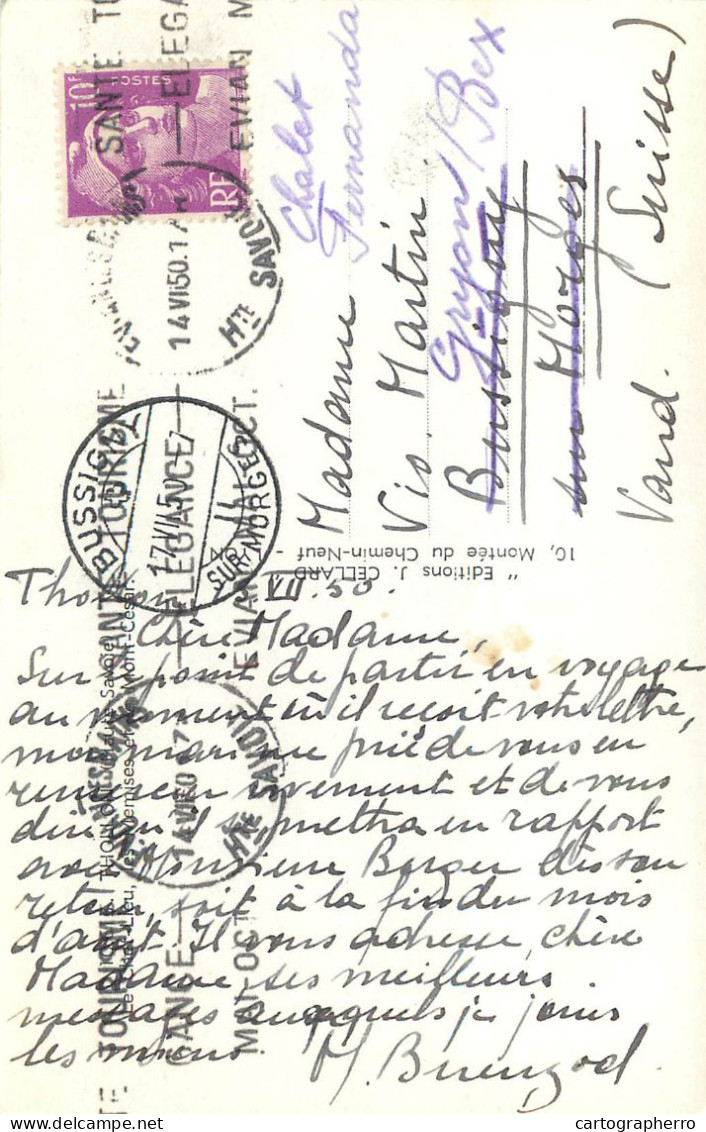 Thollon, VII.50.
Chère Madame,
Sur le point de partir en voyage
au moment où il reçoit votre lettre,
mon mari me prie de vous en
remercier vivement et de vous
dire qu'il se mettra en rapport
avec Monsieur Berger dès son
retour, soit à la fin du mois
d'août. Il vous adresse, chère
Madame, ses meilleurs
messages auxquels je joins
les miens.
M. Buenzod.
Madame
Vio. Martin
Bussigny
sur Morges
Vaud. (Suisse)
Chalet
Fernanda
Gryon/Bex
10F
POSTES
RF
SANTE
ELEGANCE
EVIAN
14 VII 50
HTE SAVOIE
TOURISME
ELEGANCE
MAI-OCT.
BUSSIGNY
17.VII.50-7
SUR MORGES
" Editions J. CELLARD
10, Montée du Chemin-Neuf
THOLLON (Haute-Savoie)
14 VII 50
HTE SAVOIE
TOURISME
MAI-OCT.
cartographerro